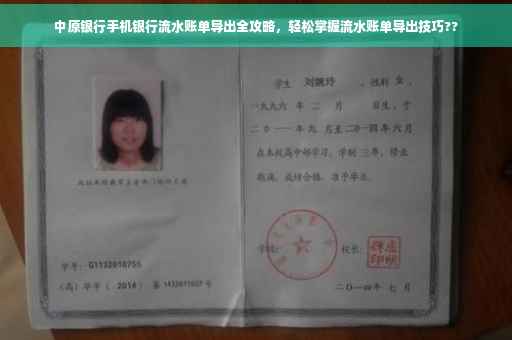 中原银行手机银行流水账单导出全攻略，轻松掌握流水账单导出技巧??
学生 刘婉玲 ，性别 女 ，
一九九六 年 二 月 日生，于
二〇一一年九 月至二〇一四年六月
在本校高中部学习，学制 三年，修业
期满，成绩合格，准予毕业。
学校： 校长：
学号： G1132010755
（高）毕字（ 2014 ）第 1432011027 号
二〇一四年 七 月